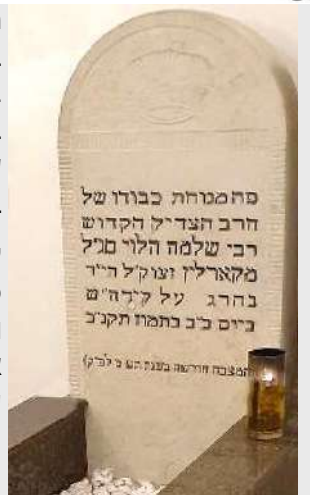 פה מנוחת כבודו של
הרב הצדיק הקדוש
רבי שלמה הלוי סג״ל
מקארלין זצוק״ל הי״ד
נהרג על קידה״ש
ביום כ״ב בתמוז תקנ״ב
(המצבה חודשה בשנת